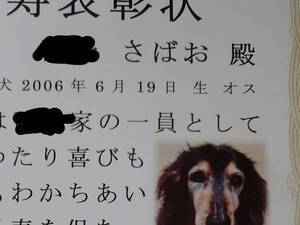 寿表彰状
さばお 殿
犬 2006年6月19日 生 オス
は 家の一員として
ったり喜びも
わかちあい